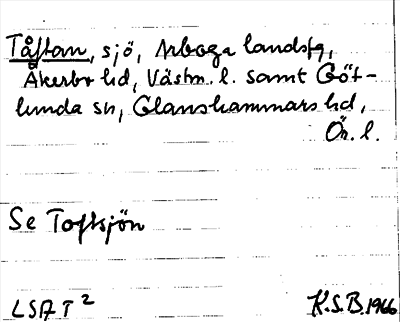 Tåftan, sjö, Arboga landsfg,
Åkerbo hd, Västm. l. samt Göt-
lunda sn, Glanshammars hd,
Ör. l.
Se Toftsjön
LSA T²
K.S.B. 1966